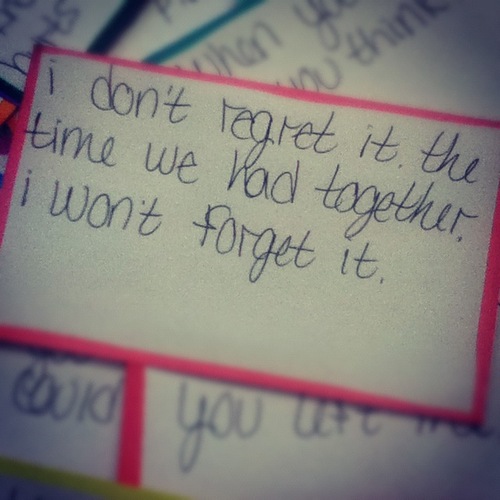 when you
you think
i don't regret it. the
time we had together.
i won't forget it.
could
you left me